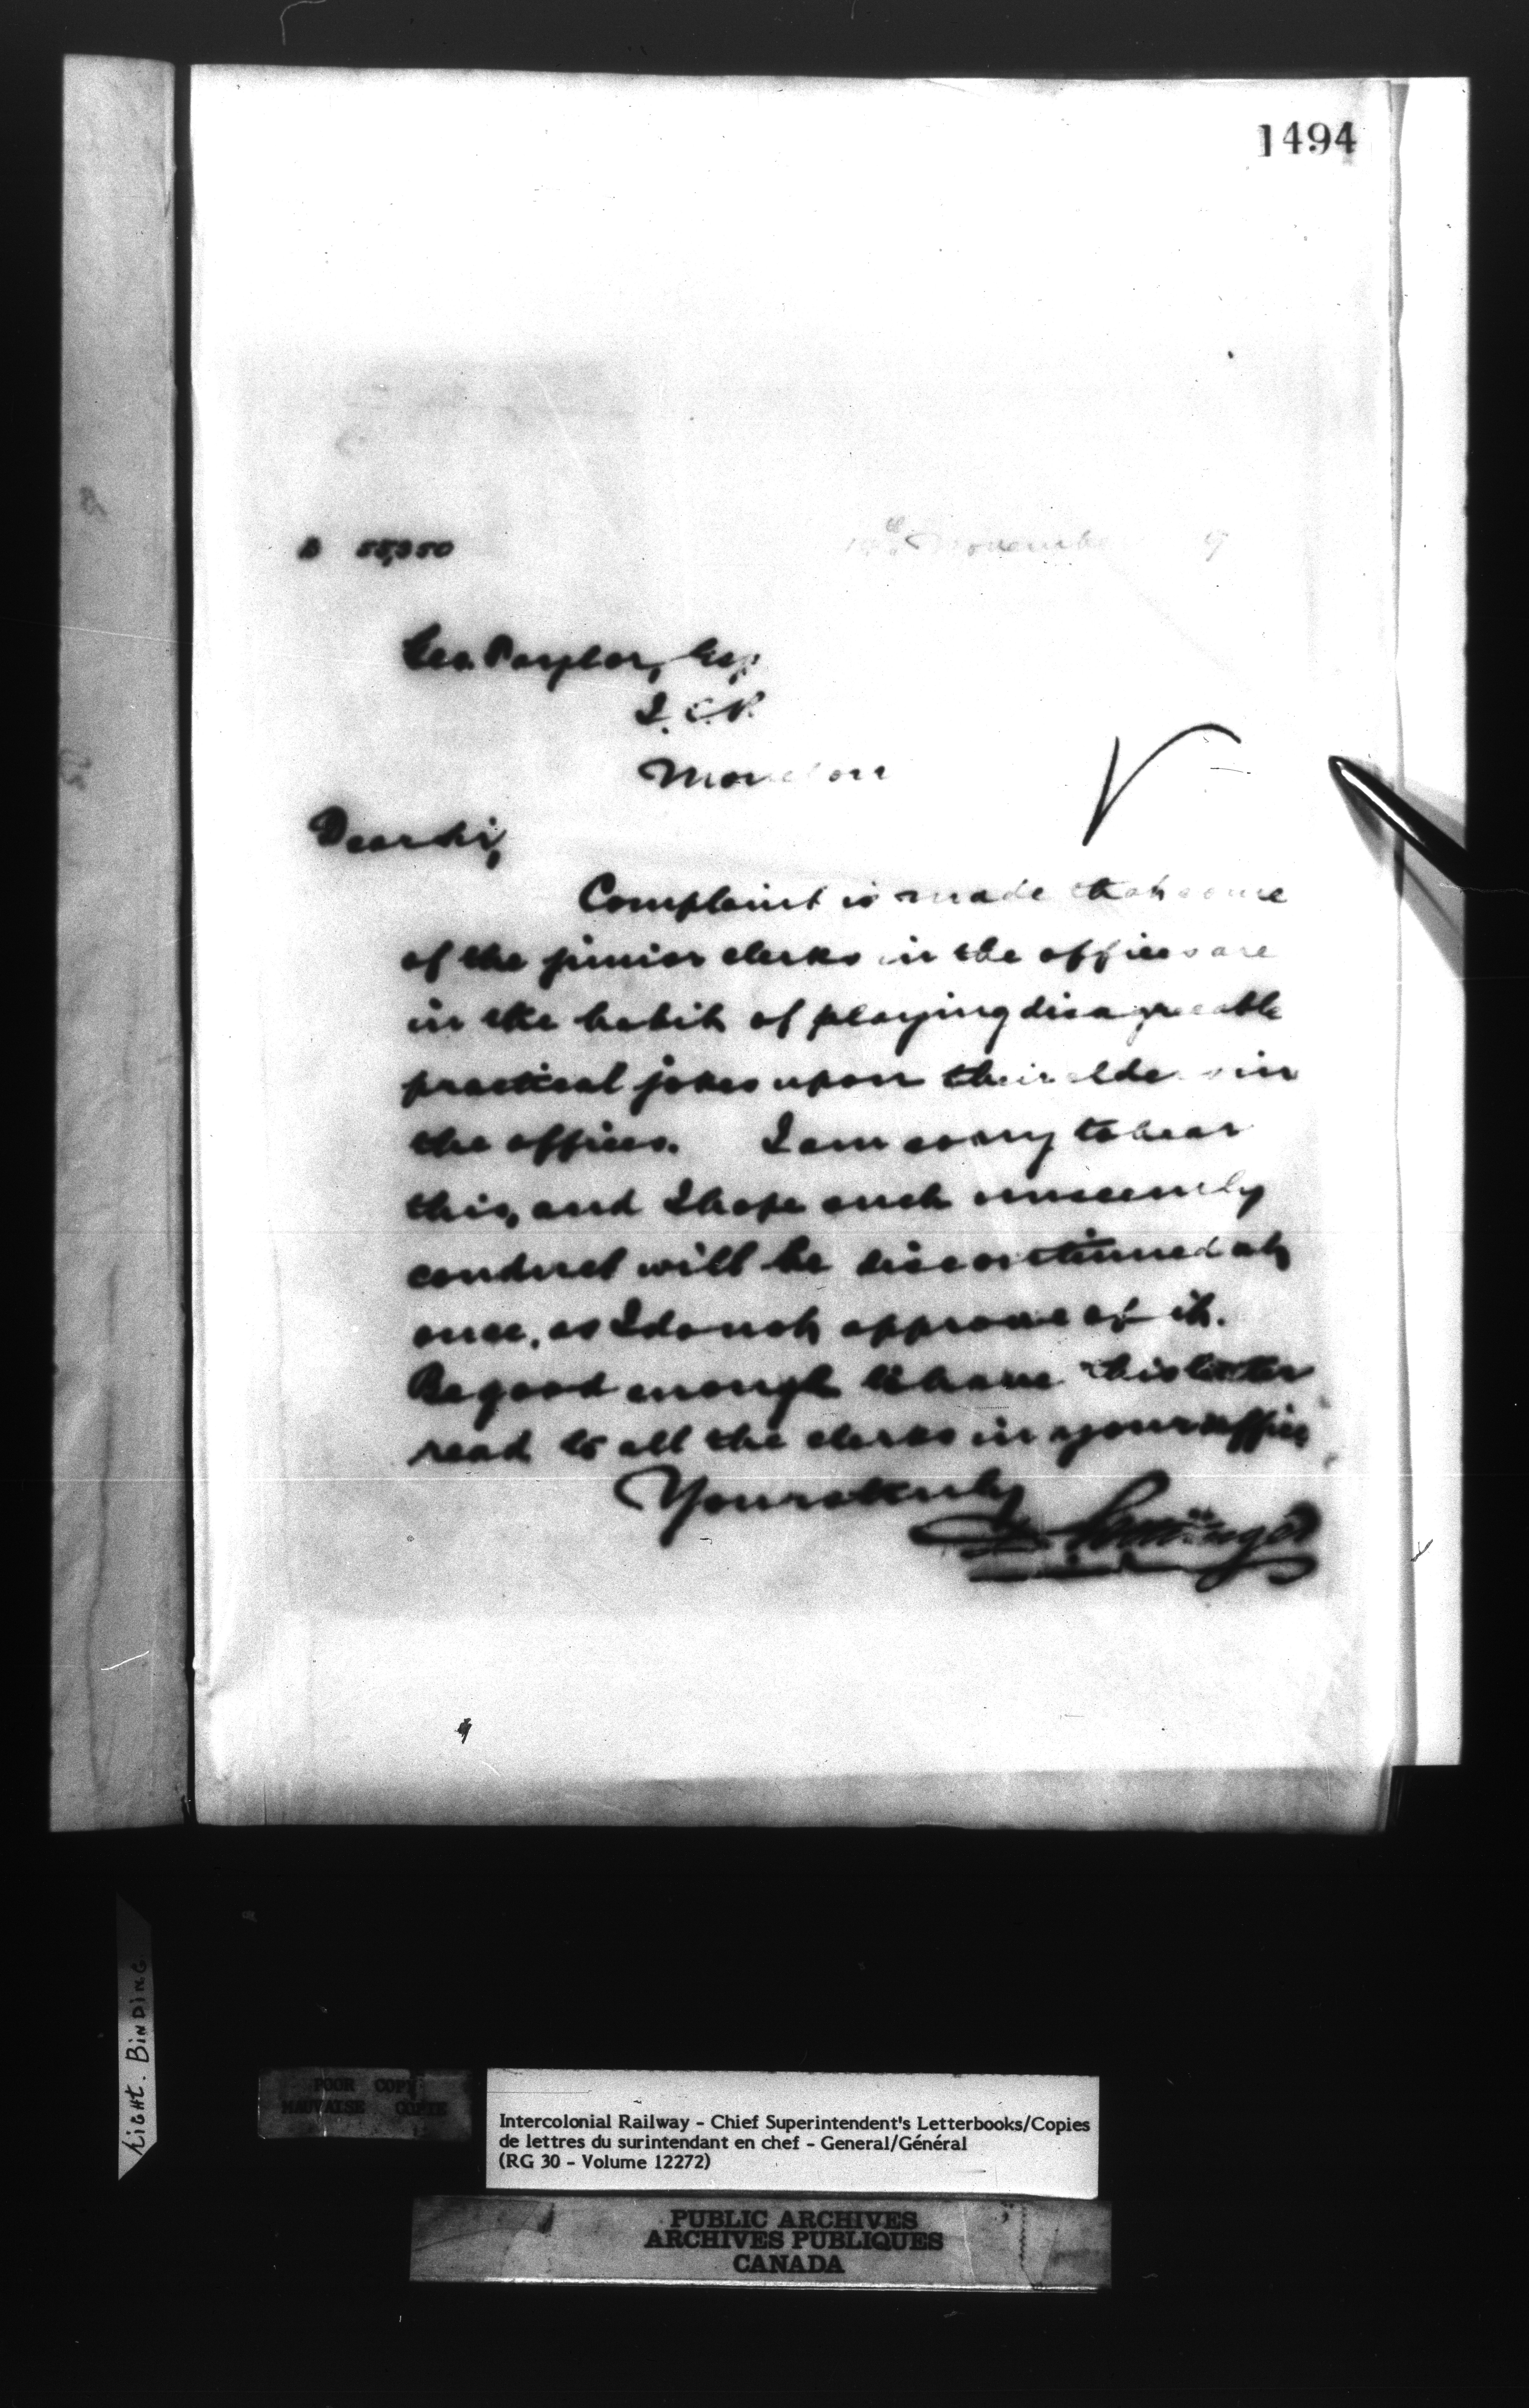 1494
B 55,950
November 9
Geo. Taylor, Esq.
I.C.R.
Moncton
Dear Sir,
Complaint is made that some
of the junior clerks in the offices are
in the habit of playing disagreeable
practical jokes upon their elders in
the offices. I am sorry to hear
this, and I hope such unseemly
conduct will be discontinued at
once, as I do not approve of it.
Be good enough to have this letter
read to all the clerks in your office
Yours truly
D. Pottinger
Tight. Binding
POOR COPY
MAUVAISE COPIE
Intercolonial Railway - Chief Superintendent's Letterbooks/Copies
de lettres du surintendant en chef - General/Général
(RG 30 - Volume 12272)
PUBLIC ARCHIVES
ARCHIVES PUBLIQUES
CANADA